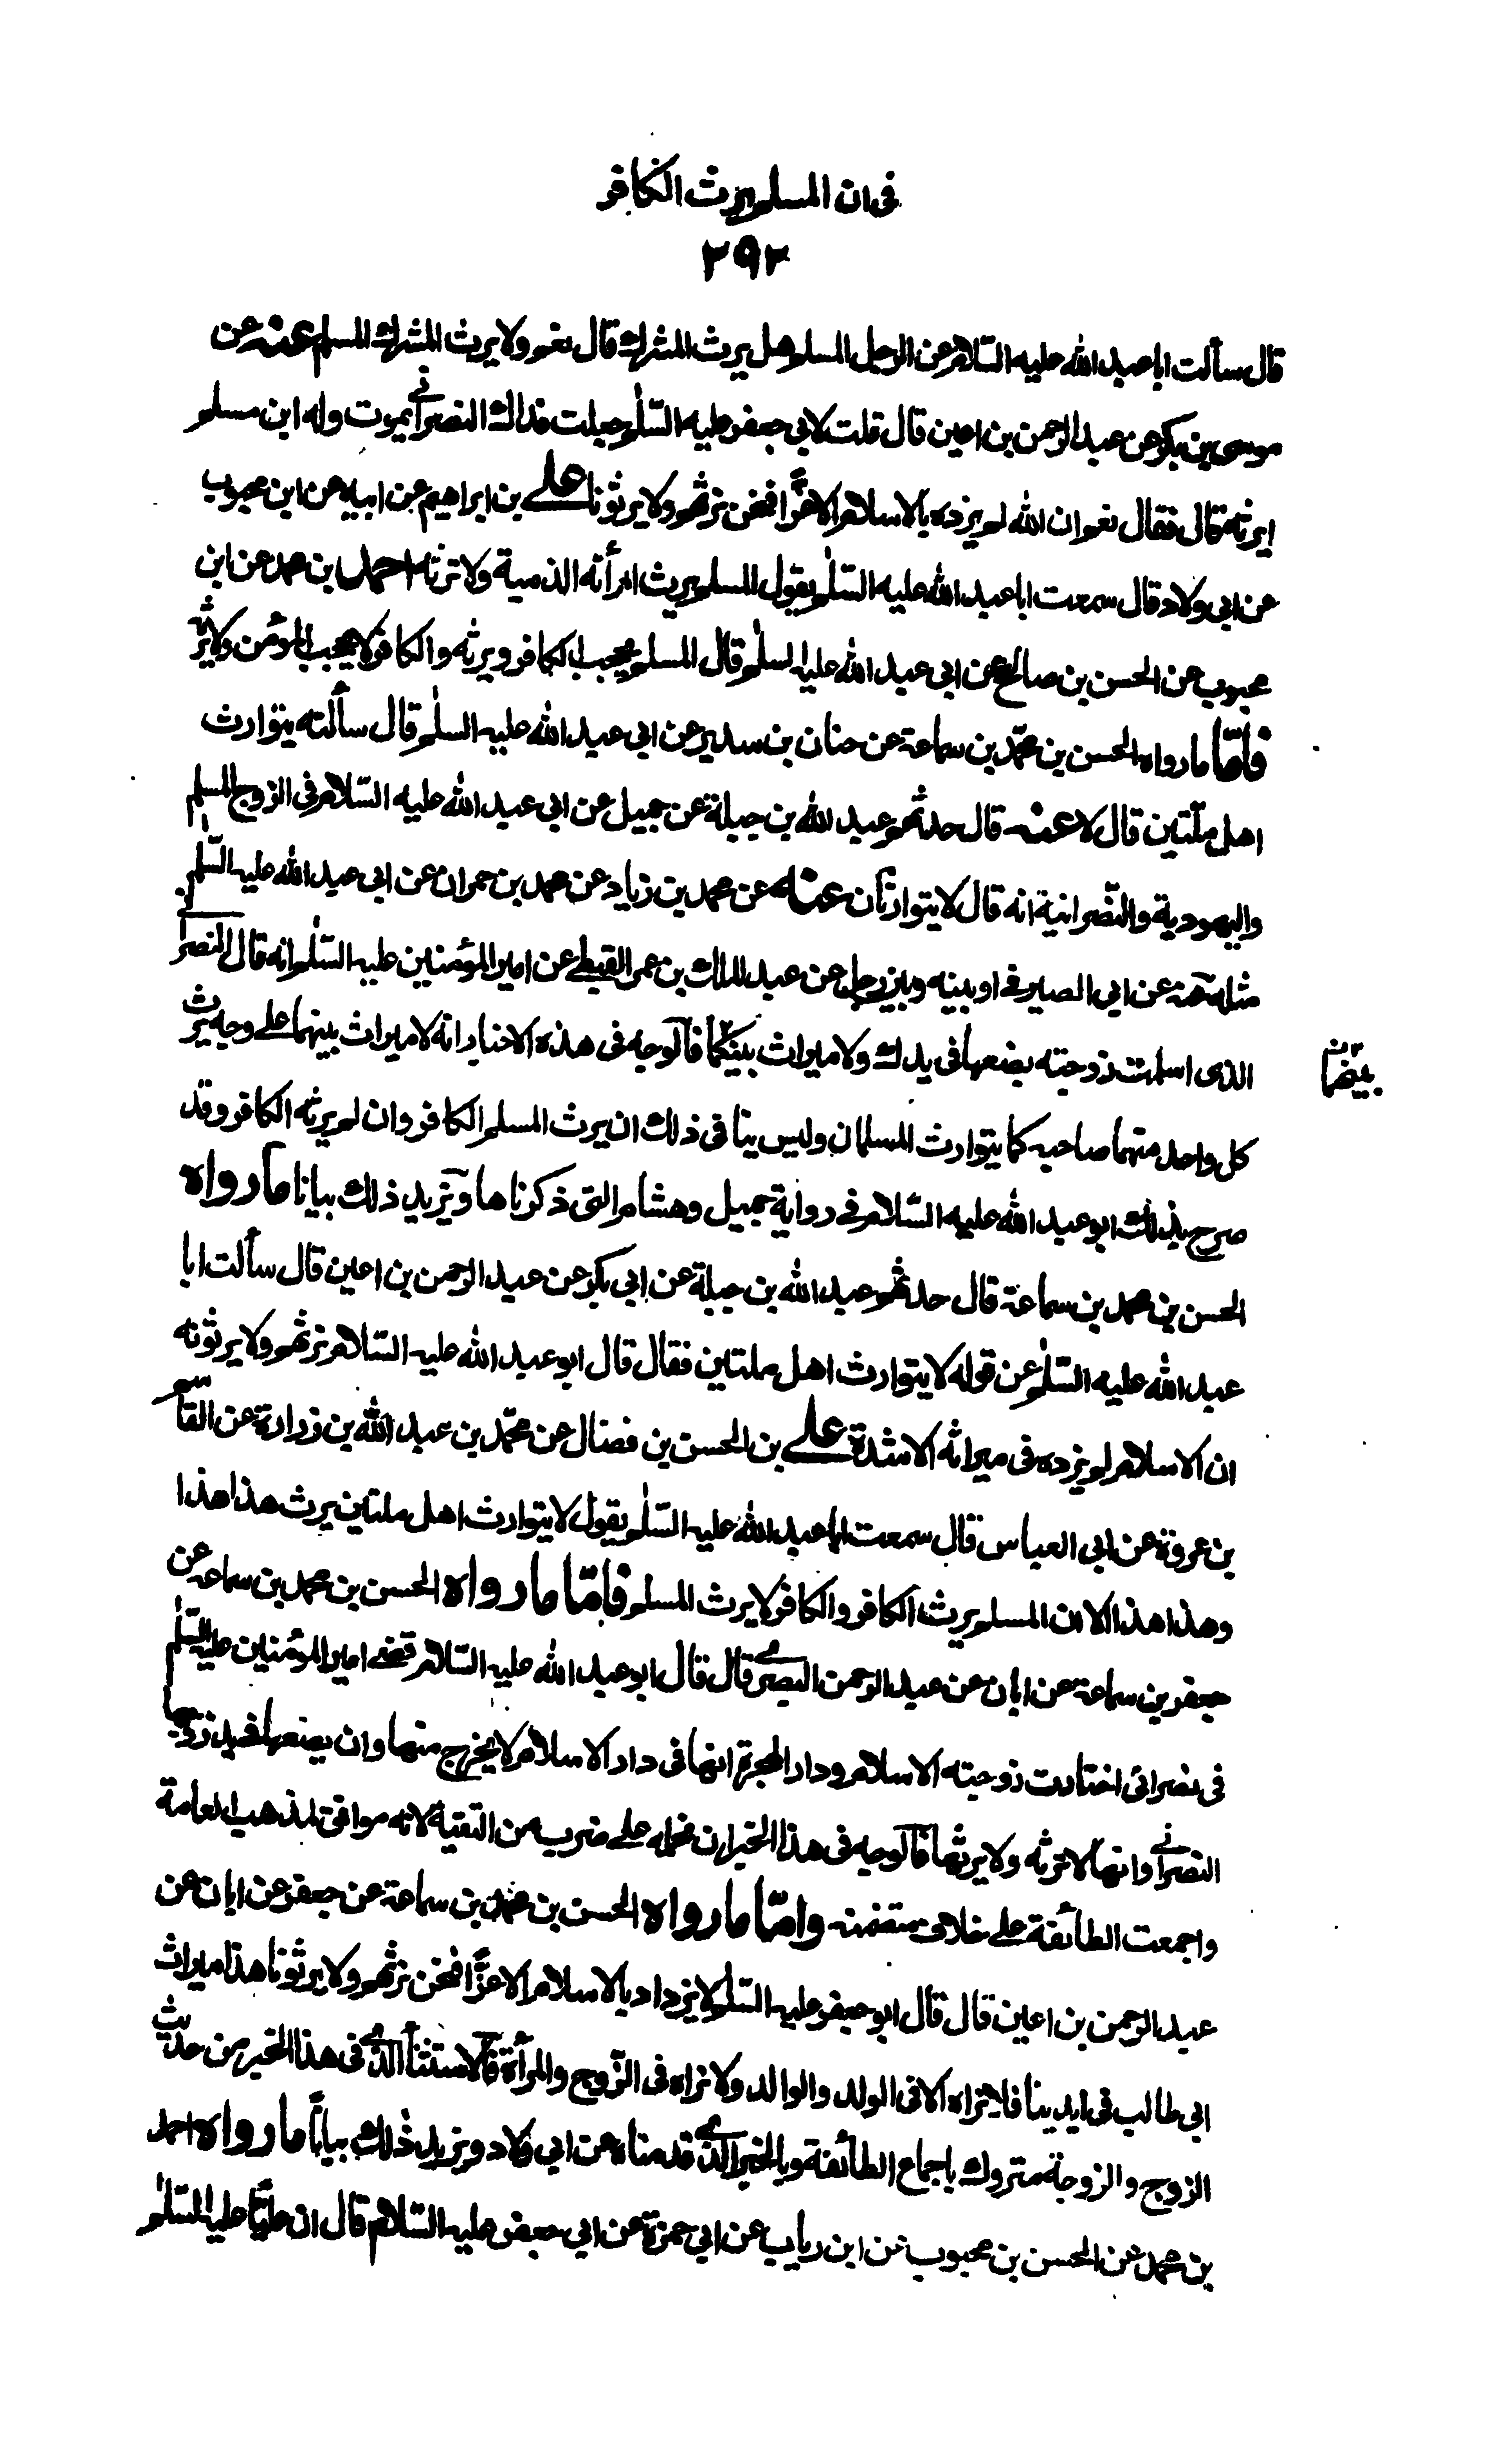 في ان المسلم يرث الكافر
٢٩٢
قال سألت ابا عبد الله عليه السّلام عن الرجل المسلم هل يرث المشرك قال نعم ولا يرث المشرك المسلم عنه عن
موسى بن بكر عن عبد الرحمن بن اعين قال قلت لابي جعفر عليه السّلٰم جعلت فداك النصرانّي يموت وله ابن مسلم
ايرثه قال فقال نعم ان الله لم يزده بالاسلام الا عزّا فنحن نرثهم ولا يرثونا علي بن ابراهيم عن ابيه عن ابن محبوب
عن ابى ولاد قال سمعت ابا عبد الله عليه السّلٰم يقول المسلم يرث امرأته الذمية ولا ترثه احمد بن محمد عن ابن
محبوب عن الحسن بن صالح عن ابى عبد الله عليه السلٰم قال المسلم يحجب الكافر ويرثه والكافر لا يحجب المؤمن ولا يرثه
فامّا ما رواه الحسن بن محمّد بن سماعة عن حنان بن سدير عن ابي عبد الله عليه السلٰم قال سألته يتوارث
اهل ملّتين قال لا عنه قال حدثهم عبد الله بن جبلة عن جميل عن ابى عبد الله عليه السّلام في الزوج المسلم
واليهودية والنّصرانية انه قال لا يتوارثان عنه عن محمد بن زياد عن محمد بن حمران عن ابى عبد الله عليه السّلٰم
مثله عنه عن ابي الصيرفي او بينه وبين رجل عن عبد الملك بن عمر القبطي عن امير المؤمنين عليه السّلٰم انه قال للنصراني
الذى اسلمت زوجته بضعها في يدك ولا ميراث بينكما فالوجه فى هذه الاخبار انه لا ميراث بينهما على وجه يرث
بيتهما
كل واحد منهما صاحبه كما يتوارث المسلمان وليس ينافى ذلك ان يرث المسلم الكافر وان لم يرثه الكافر وقد
صرح بذلك ابو عبد الله عليه السّلام في رواية جميل وهشام التي ذكرناها ويزيد ذلك بيانا ما رواه
الحسن بن محمد بن سماعة قال حدثهم عبد الله بن جبلة عن ابي بكر عن عبد الرحمن بن اعين قال سألت ابا
عبد الله عليه السّلٰم عن قوله لا يتوارث اهل ملتين فقال قال ابو عبد الله عليه السّلام نرثهم ولا يرثونه
ان الاسلام لم يزده فى ميراثه الا شدة علي بن الحسن بن فضال عن محمّد بن عبد الله بن زرارة عن القاسم
بن عروة عن ابى العباس قال سمعت ابا عبد الله عليه السّلٰم يقول لا يتوارث اهل ملتين يرث هذا هذا
وهذا هذا الا ان المسلم يرث الكافر والكافر لا يرث المسلم فامّا ما رواه الحسن بن محمد بن سماعة عن
جعفر بن سماعة عن ابان عن عبد الرحمن البصري قال قال ابو عبد الله عليه السّلام قضى امير المؤمنين عليه السّلٰم
فى نصرانى اختارت زوجته الاسلام ودار الهجرة انها فى دار الاسلام لا يخرج منها وان بضعها فى يد زوجها
النصراني وانها لا ترثه ولا يرثها فالوجه فى هذا الخبر ان نحمله على ضرب من التقية لانه موافق لمذهب العامة
واجمعت الطائفة على خلاف متضمنه وامّا ما رواه الحسن بن محمد بن سماعة عن جعفر عن ابان عن
عبد الرحمن بن اعين قال قال ابو جعفر عليه السّلٰم لا يزداد بالاسلام الا عزّا فنحن نرثهم ولا يرثونا هذا ميراث
ابى طالب فى ايدينا فلا نراه الا فى الولد والوالد ولا نراه فى الزّوج والمرأة فالاستثناء الذي فى هذا الخبر من حديث
الزوج والزوجة متروك باجماع الطائفة وبالخبر الذي قدمناه عن ابي ولاد ويزيد ذلك بيانا ما رواه احمد
بن محمد عن الحسن بن محبوب عن ابن رياب عن ابي حمزة عن ابي جعفر عليه السّلام قال ان عليّا عليه السّلٰم